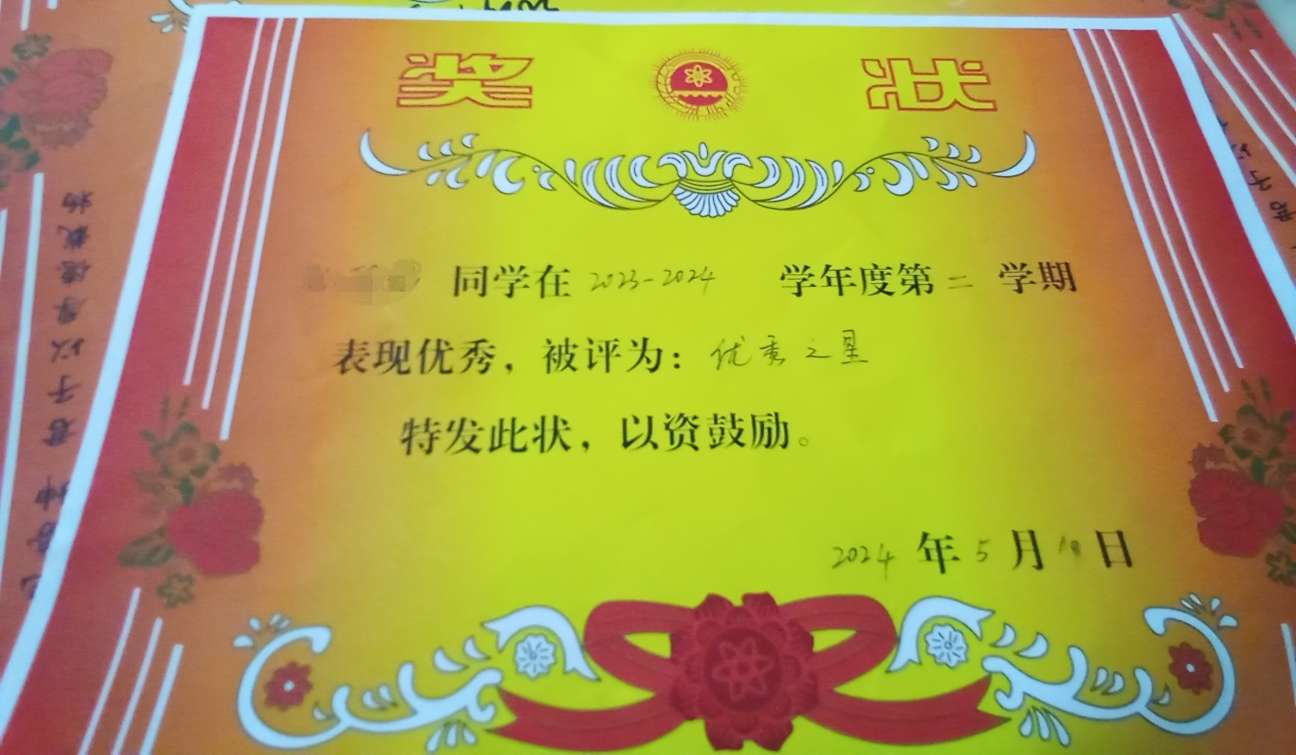 奖状
同学在 2023-2024 学年度第二学期
表现优秀，被评为：优秀之星
特发此状，以资鼓励。
2024年5月19日
君子以厚德载物